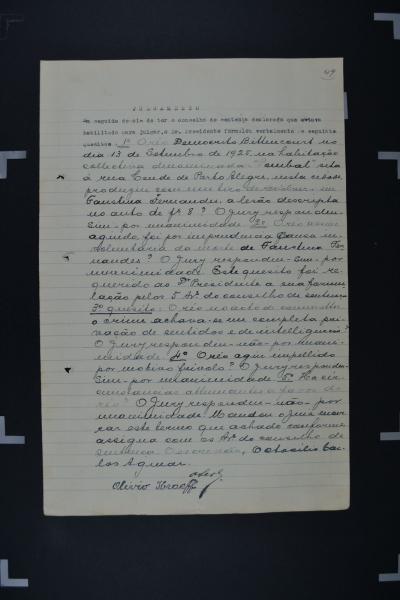 49
JULGAMENTO
Em seguida depois de ter o conselho de sentença declarado que estava
habilitado para julgar, o Dr. Presidente formulou verbalmente o seguinte
quesitos - 1º O réo Democrito Bittencourt no
dia 13 de Setembro de 1928, na habitação
collectiva denominada "Pombal" sita
á rua Conde de Porto Alegre, nesta cidade,
produziu com um tiro de revolver em
Faustina Fernandes, a lesão descripta
no auto de fs 8? O Jury respondeu
sim - por unanimidade. 2º O réo assim
agindo, foi por imprudencia causa in-
voluntaria da morte de Faustina Fer-
nandes? O Jury respondeu - sim - por
unanimidade. Este quesito foi re-
querido ao Dr Presidente a sua formu-
lação pelos Srs. do conselho de sentença
3º quesito: O réo no acto de commetter
o crime achava-se em completa pri-
vação de sentidos e de intelligencia?
O Jury respondeu - não - por unani-
midade. 4º O réo agiu impellido
por motivo frivolo? O Jury respondeu
sim - por unanimidade. 5º Ha cir-
cumstancias attenuantes a favor do
réo? O Jury respondeu - não - por
unanimidade. Mandou o juiz lavrar
este termo que achado conforme
assigna com os Srs. do conselho de
sentença. O escrivão, Octacilio Car-
los Aguiar.
Olivio